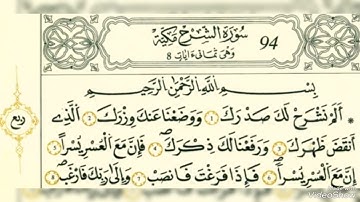 سُورَةُ الشَّرْحِ مَكِّيَّة 94
وَهِيَ ثَمَانِي ءَايَات 8
بِسْمِ اللَّهِ الرَّحْمَٰنِ الرَّحِيمِ
أَلَمْ نَشْرَحْ لَكَ صَدْرَكَ ١ وَوَضَعْنَا عَنكَ وِزْرَكَ ٢ اَلَّذِے
أَنقَضَ ظَهْرَكَ ٣ وَرَفَعْنَا لَكَ ذِكْرَكَ ٤ فَإِنَّ مَعَ اَلْعُسْرِ يُسْراً ٥
إِنَّ مَعَ اَلْعُسْرِ يُسْراً ٦ فَإِذَا فَرَغْتَ فَانصَبْ ٧ وَإِلَىٰ رَبِّكَ فَارْغَب ٨
ربع